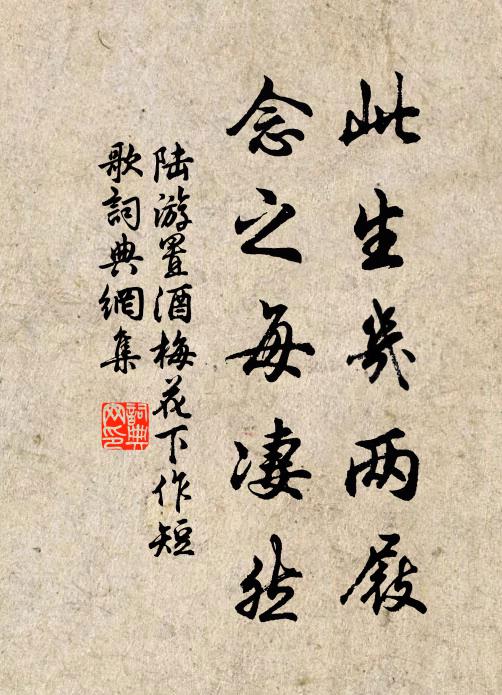 此生几两屐
念之每凄然
陆游置酒梅花下作短
歌詞典網集
詞典网印